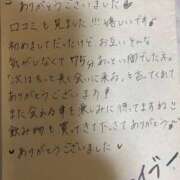 ありがとうございました
口コミも見ました!!! 嬉しいです
初めましてだったけど お互いそんな
気がしなくて 75分 あっという間でした。
次はもっと長く会いに来る と言ってくれて
ありがとうございます
また会える日を楽しみに待ってますね!!
飲み物も買ってきて下さってありがとう
ありがとうございました
イヴ